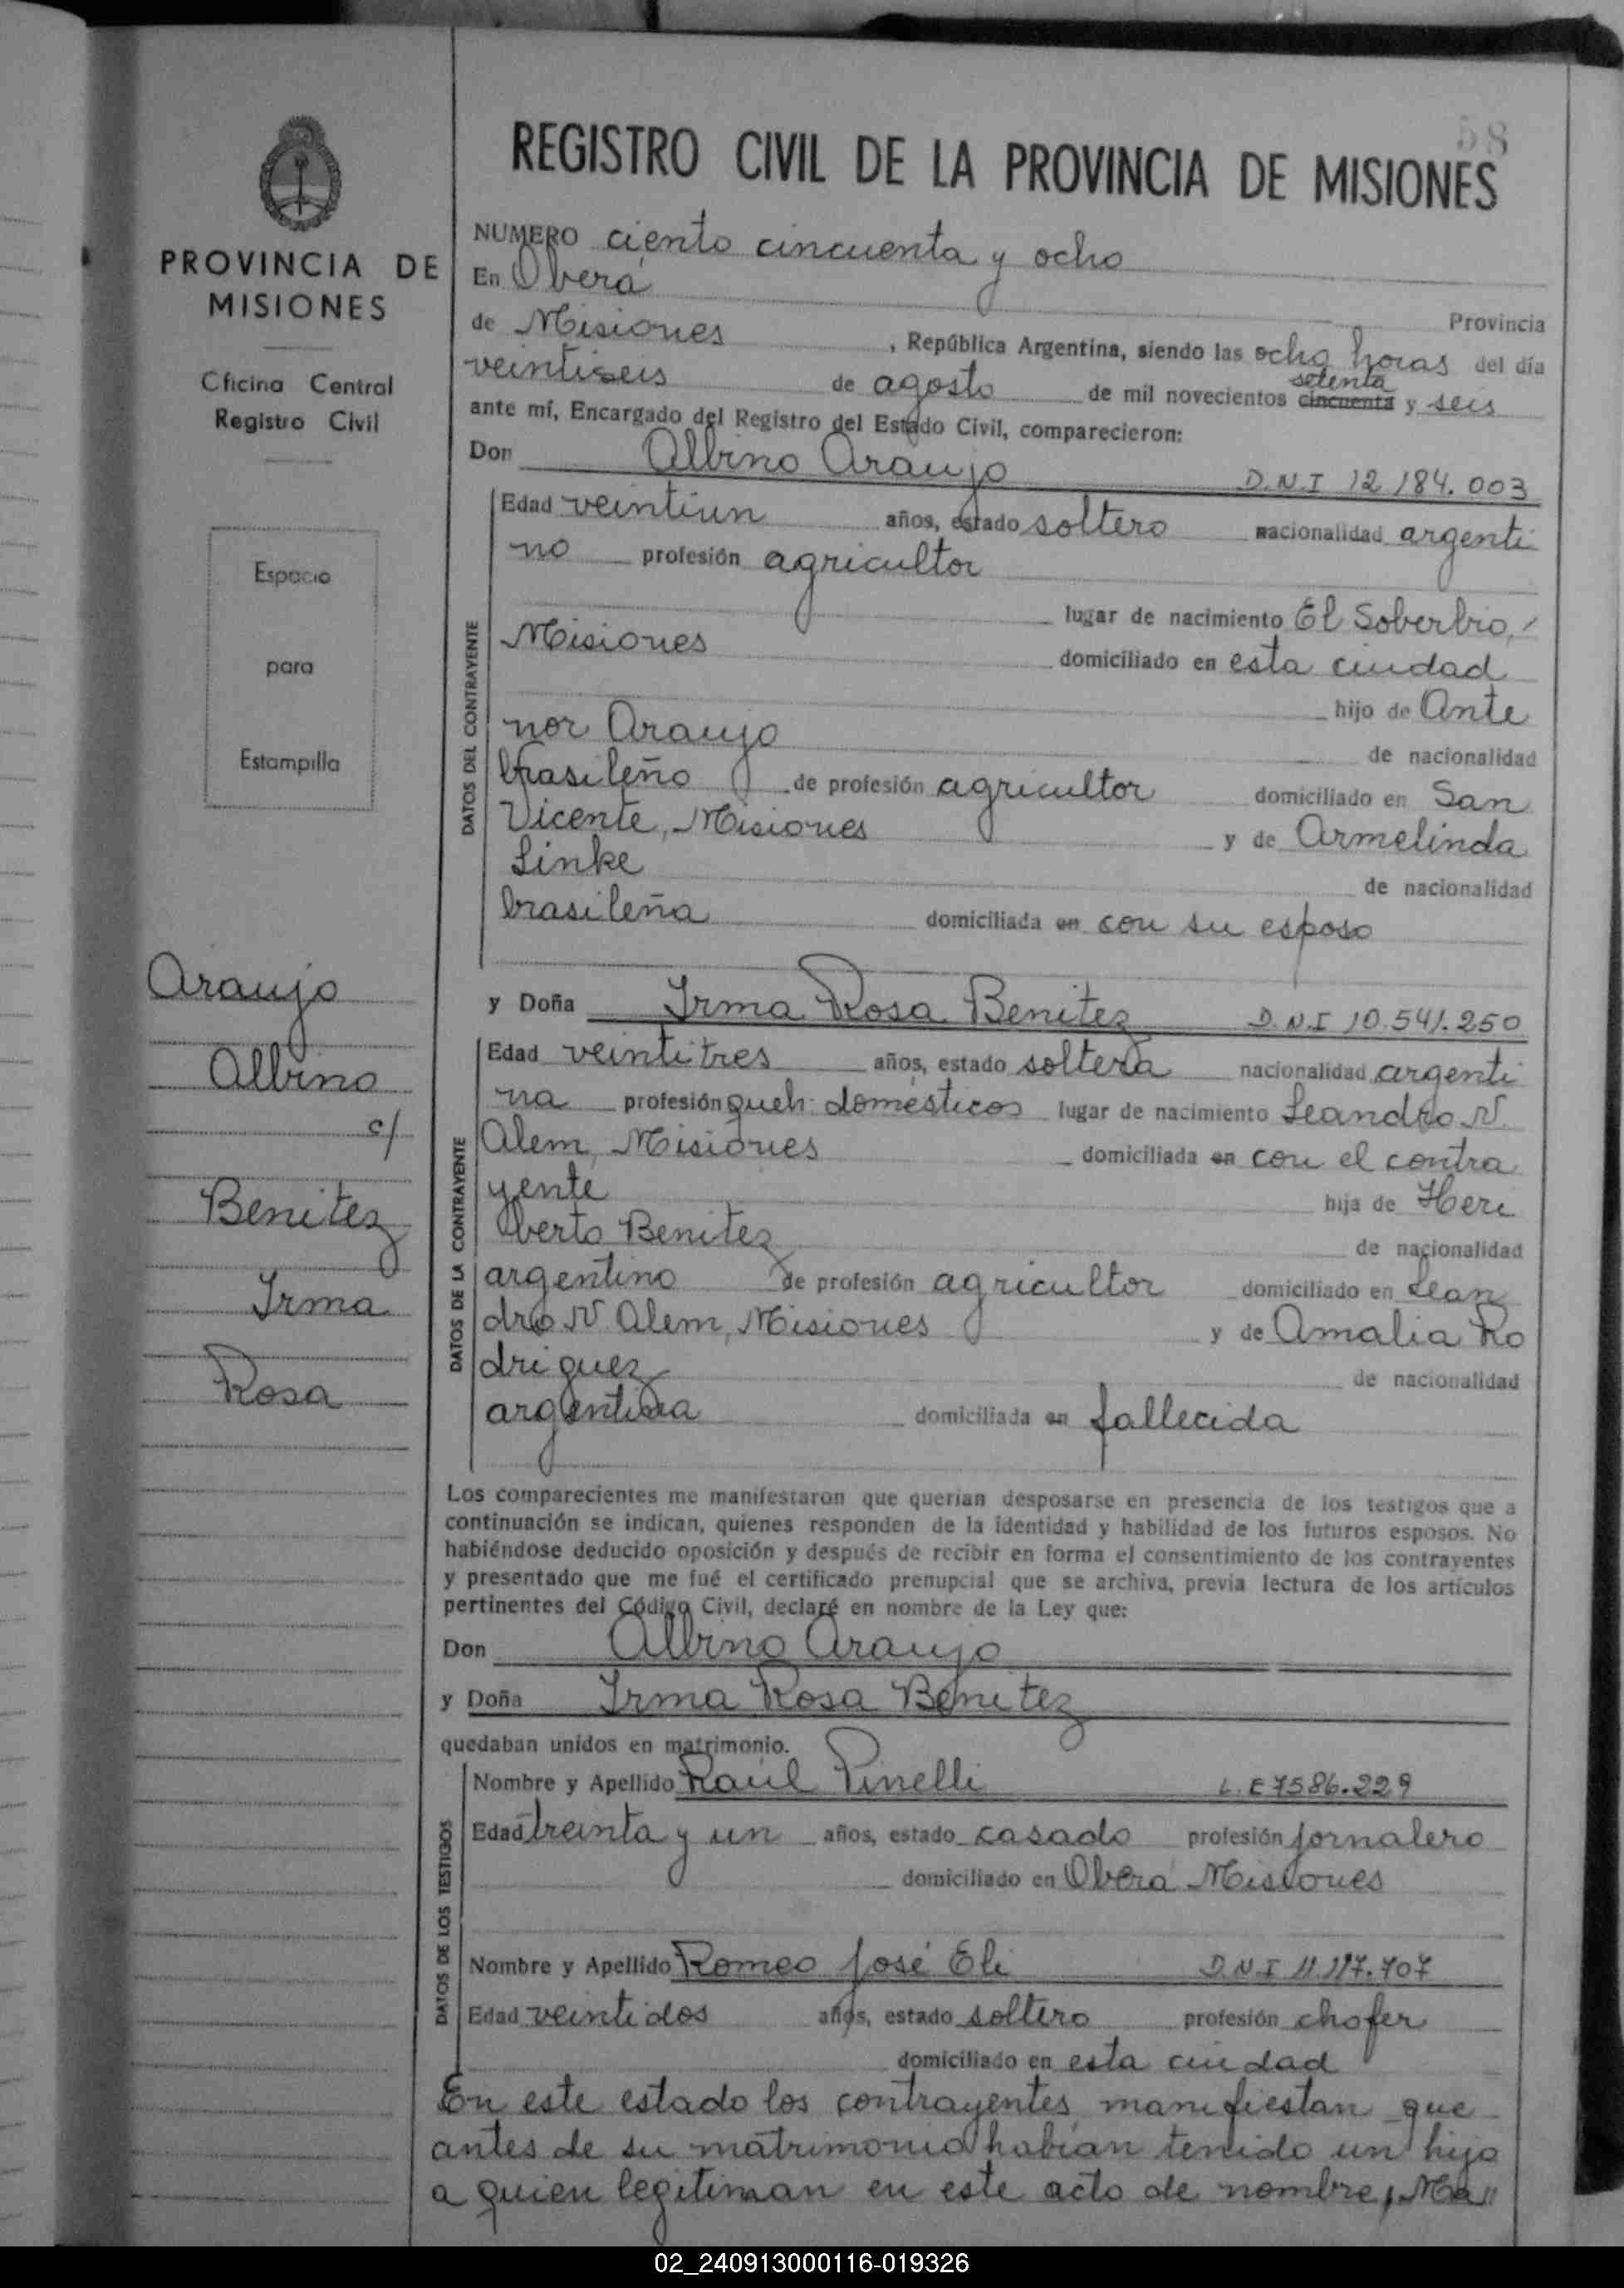 58
REGISTRO CIVIL DE LA PROVINCIA DE MISIONES
PROVINCIA DE
MISIONES
Oficina Central
Registro Civil
Espacio
para
Estampilla
Araujo
Albino
c/
Benitez
Irma
Rosa
NUMERO ciento cincuenta y ocho
En Oberá
Provincia
de Misiones, República Argentina, siendo las ocho horas del día
veintiseis de agosto de mil novecientos cincuenta setenta y seis
ante mí, Encargado del Registro del Estado Civil, comparecieron:
Don Albino Araujo D.N.I 12.184.003
DATOS DEL CONTRAYENTE
Edad veintiun años, estado soltero nacionalidad argenti
no profesión agricultor
lugar de nacimiento El Soberbio,
Misiones domiciliado en esta ciudad
hijo de Ante
nor Araujo de nacionalidad
brasileño de profesión agricultor domiciliado en San
Vicente, Misiones y de Armelinda
Linke de nacionalidad
brasileña domiciliada en con su esposo
y Doña Irma Rosa Benitez D.N.I 10.541.250
DATOS DE LA CONTRAYENTE
Edad veintitres años, estado soltera nacionalidad argenti
na profesión queh. domésticos lugar de nacimiento Leandro N.
Alem, Misiones domiciliada en con el contra
yente hija de Heri
berto Benitez de nacionalidad
argentino de profesión agricultor domiciliado en Lean
dro N Alem, Misiones y de Amalia Ro
driguez de nacionalidad
argentina domiciliada en fallecida
Los comparecientes me manifestaron que querían desposarse en presencia de los testigos que a
continuación se indican, quienes responden de la identidad y habilidad de los futuros esposos. No
habiéndose deducido oposición y después de recibir en forma el consentimiento de los contrayentes
y presentado que me fué el certificado prenupcial que se archiva, previa lectura de los artículos
pertinentes del Código Civil, declaré en nombre de la Ley que:
Don Albino Araujo
y Doña Irma Rosa Benitez
quedaban unidos en matrimonio.
DATOS DE LOS TESTIGOS
Nombre y Apellido Raúl Pinelli L.E 7586.229
Edad treinta y un años, estado casado profesión jornalero
domiciliado en Oberá Misiones
Nombre y Apellido Romeo José Eli D.N.I 11.117.707
Edad veintidos años, estado soltero profesión chofer
domiciliado en esta ciudad
En este estado los contrayentes manifiestan que
antes de su matrimonio habían tenido un hijo
a quien legitiman en este acto de nombre, Ma
02_240913000116-019326